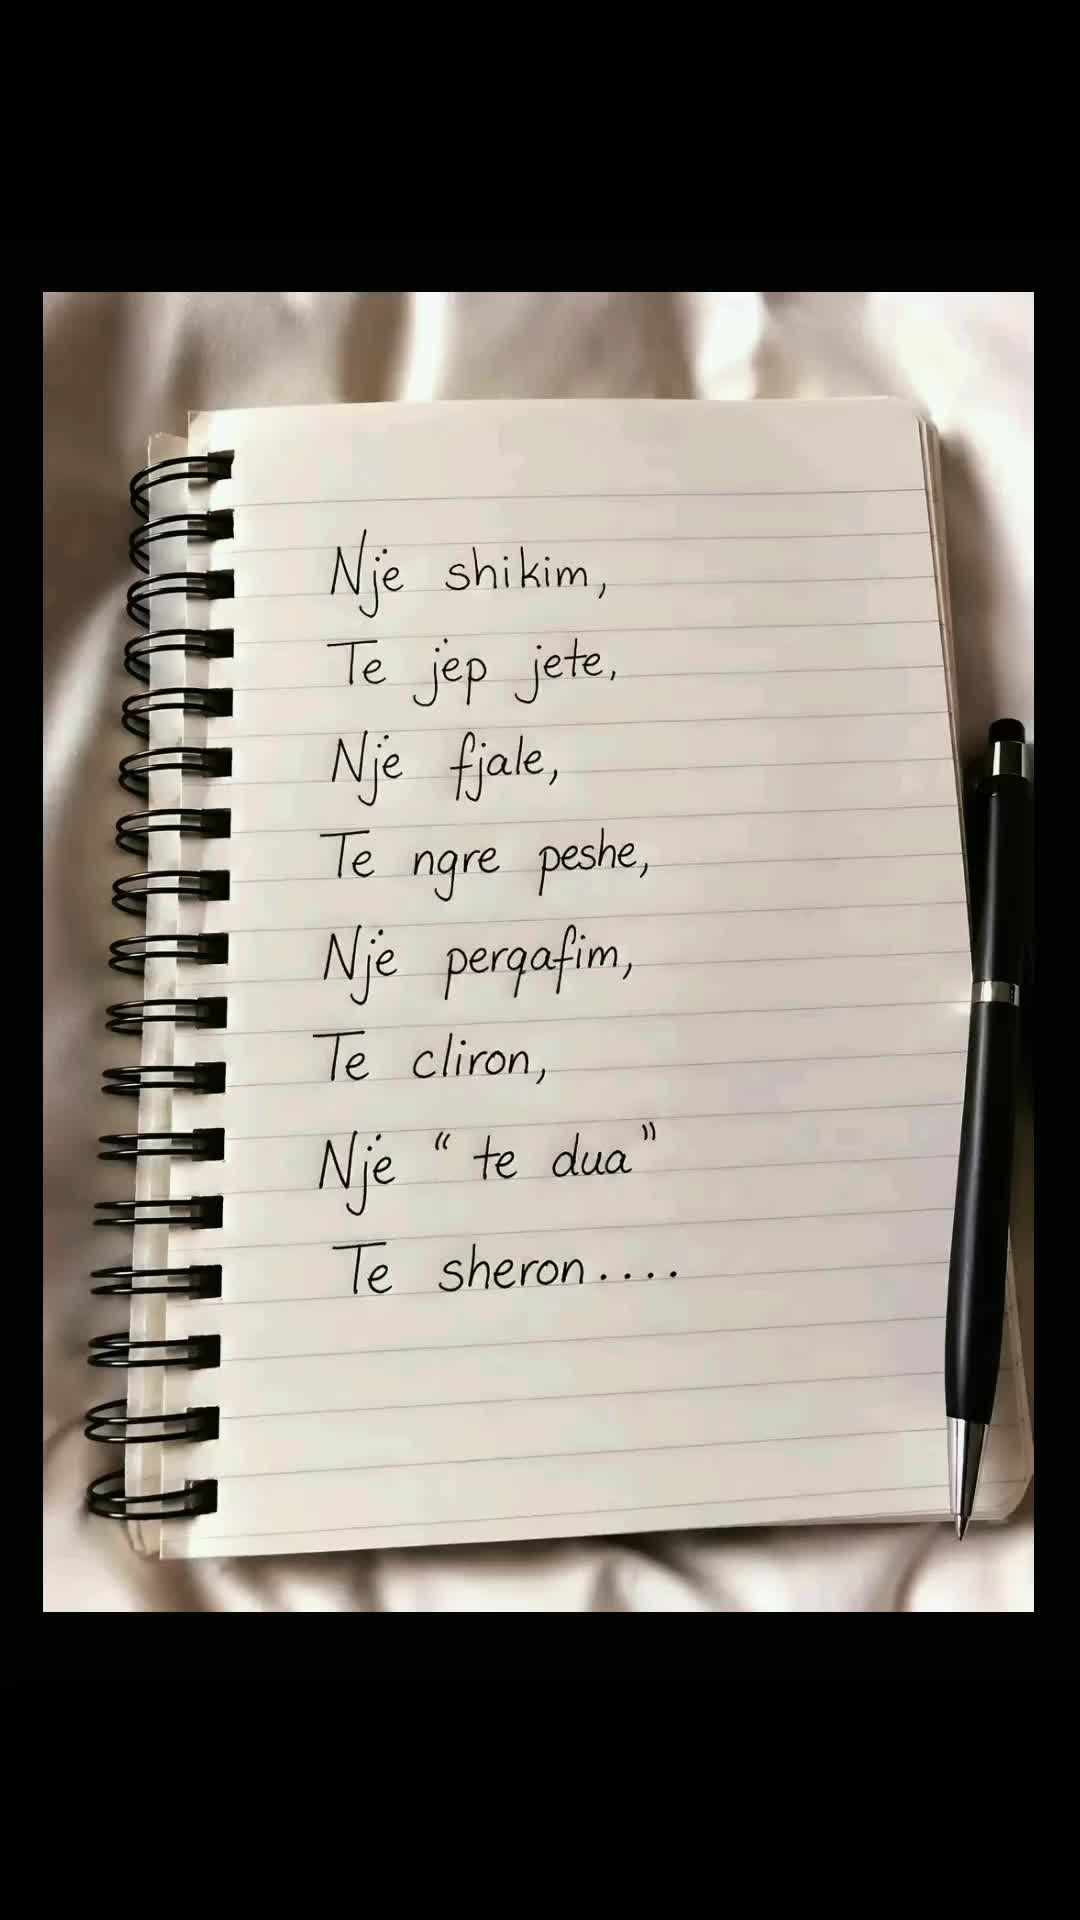 Nje shikim,
Te jep jete,
Nje fjale,
Te ngre peshe,
Nje perqafim,
Te cliron,
Nje “ te dua”
Te sheron....